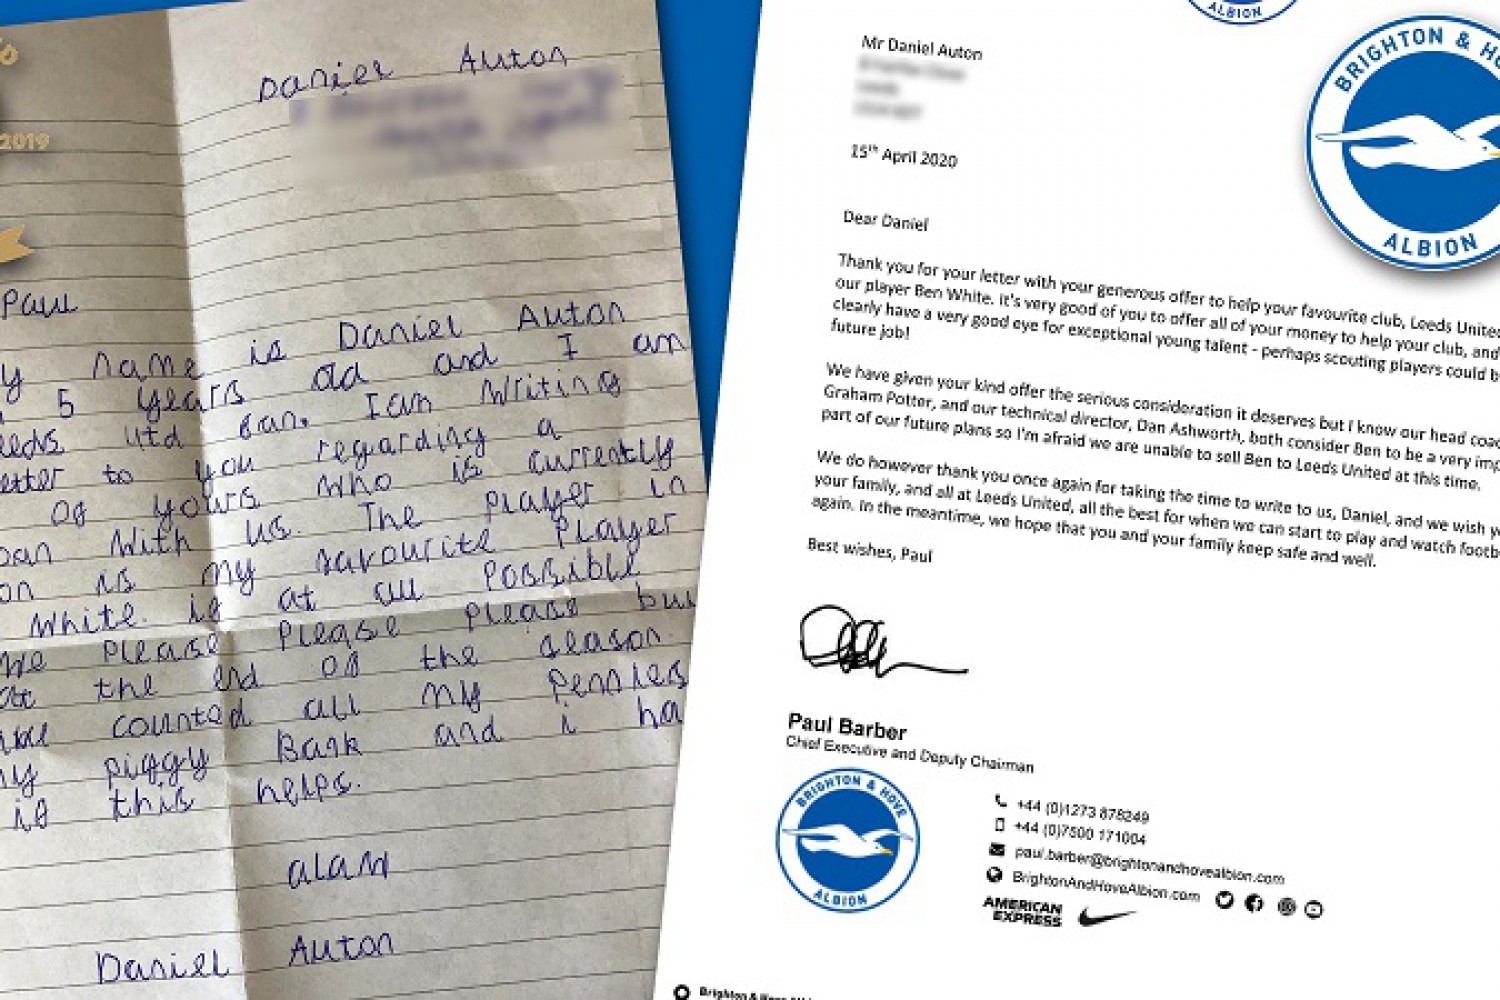 2019
Daniel Auton
Paul
name is Daniel Auton
5 years old and I am
utd fan. I am writing
to you regarding a
of yours who is currently
with us. The player in
is my favourite player
White. if at all possible
please please please
at the end of the season.
counted all my pennies
piggy Bank and i
if this helps.
ALAW
Daniel Auton
ALBION
BRIGHTON & HO
ALBION
Mr Daniel Auton
15th April 2020
Dear Daniel
Thank you for your letter with your generous offer to help your favourite club, Leeds United
our player Ben White. It's very good of you to offer all of your money to help your club, and
clearly have a very good eye for exceptional young talent - perhaps scouting players could b
future job!
We have given your kind offer the serious consideration it deserves but I know our head coac
Graham Potter, and our technical director, Dan Ashworth, both consider Ben to be a very imp
part of our future plans so I'm afraid we are unable to sell Ben to Leeds United at this time.
We do however thank you once again for taking the time to write to us, Daniel, and we wish y
your family, and all at Leeds United, all the best for when we can start to play and watch footb
again. In the meantime, we hope that you and your family keep safe and well.
Best wishes, Paul
Paul Barber
Chief Executive and Deputy Chairman
BRIGHTON & HOVE
ALBION
+44 (0)1273 878249
+44 (0)7500 171004
paul.barber@brightonandhovealbion.com
BrightonAndHoveAlbion.com
AMERICAN
EXPRESS
Brighton &